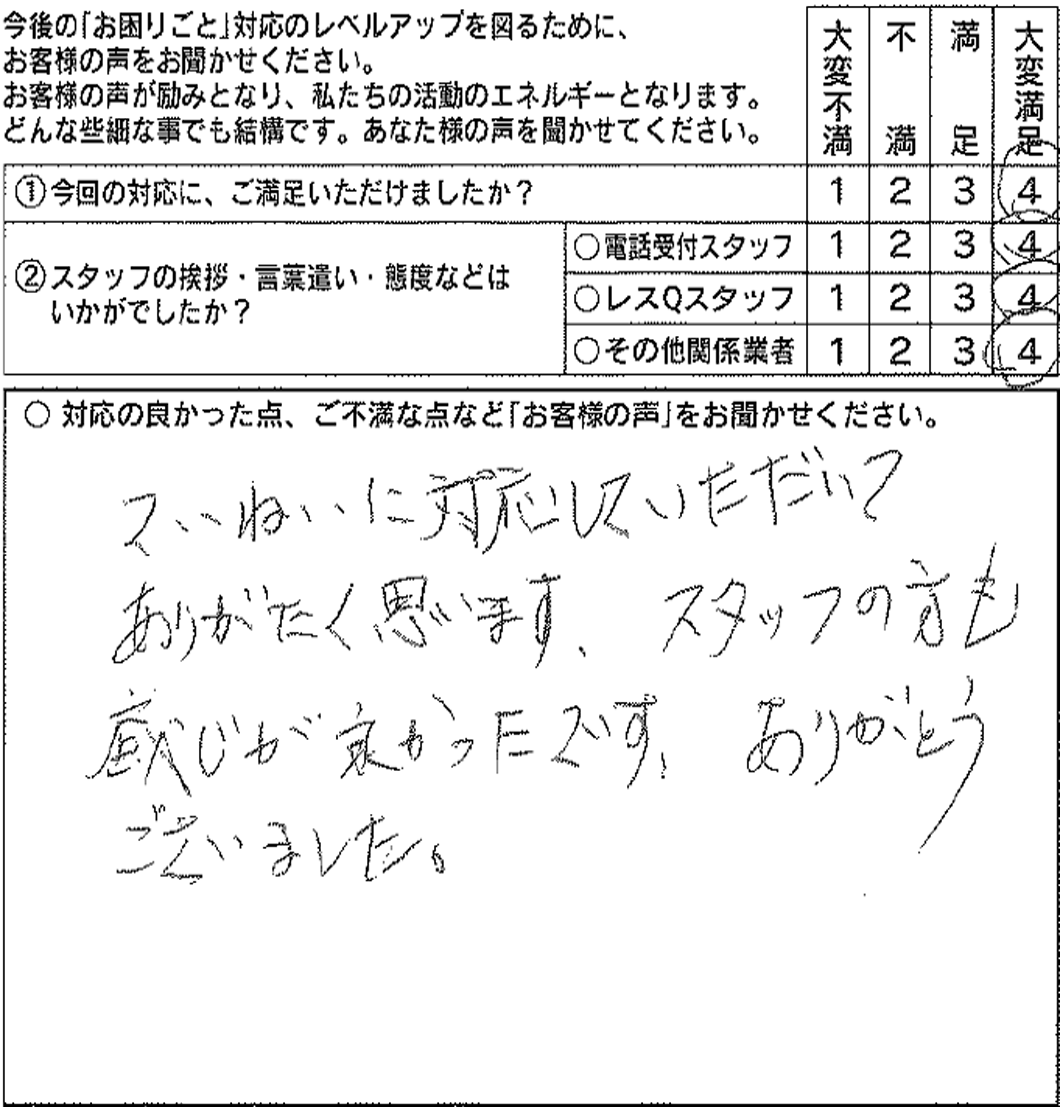 今後の「お困りごと」対応のレベルアップを図るために、
お客様の声をお聞かせください。
お客様の声が励みとなり、私たちの活動のエネルギーとなります。
どんな些細な事でも結構です。あなた様の声を聞かせてください。
大変不満 不満 満足 大変満足
①今回の対応に、ご満足いただけましたか？ 1 2 3 4
②スタッフの挨拶・言葉遣い・態度などは
いかがでしたか？
○電話受付スタッフ 1 2 3 4
○レスQスタッフ 1 2 3 4
○その他関係業者 1 2 3 4
○ 対応の良かった点、ご不満な点など「お客様の声」をお聞かせください。
ていねいに対応していただいて
ありがたく思います、スタッフの方も
感じが良かったです、ありがとう
ございました。